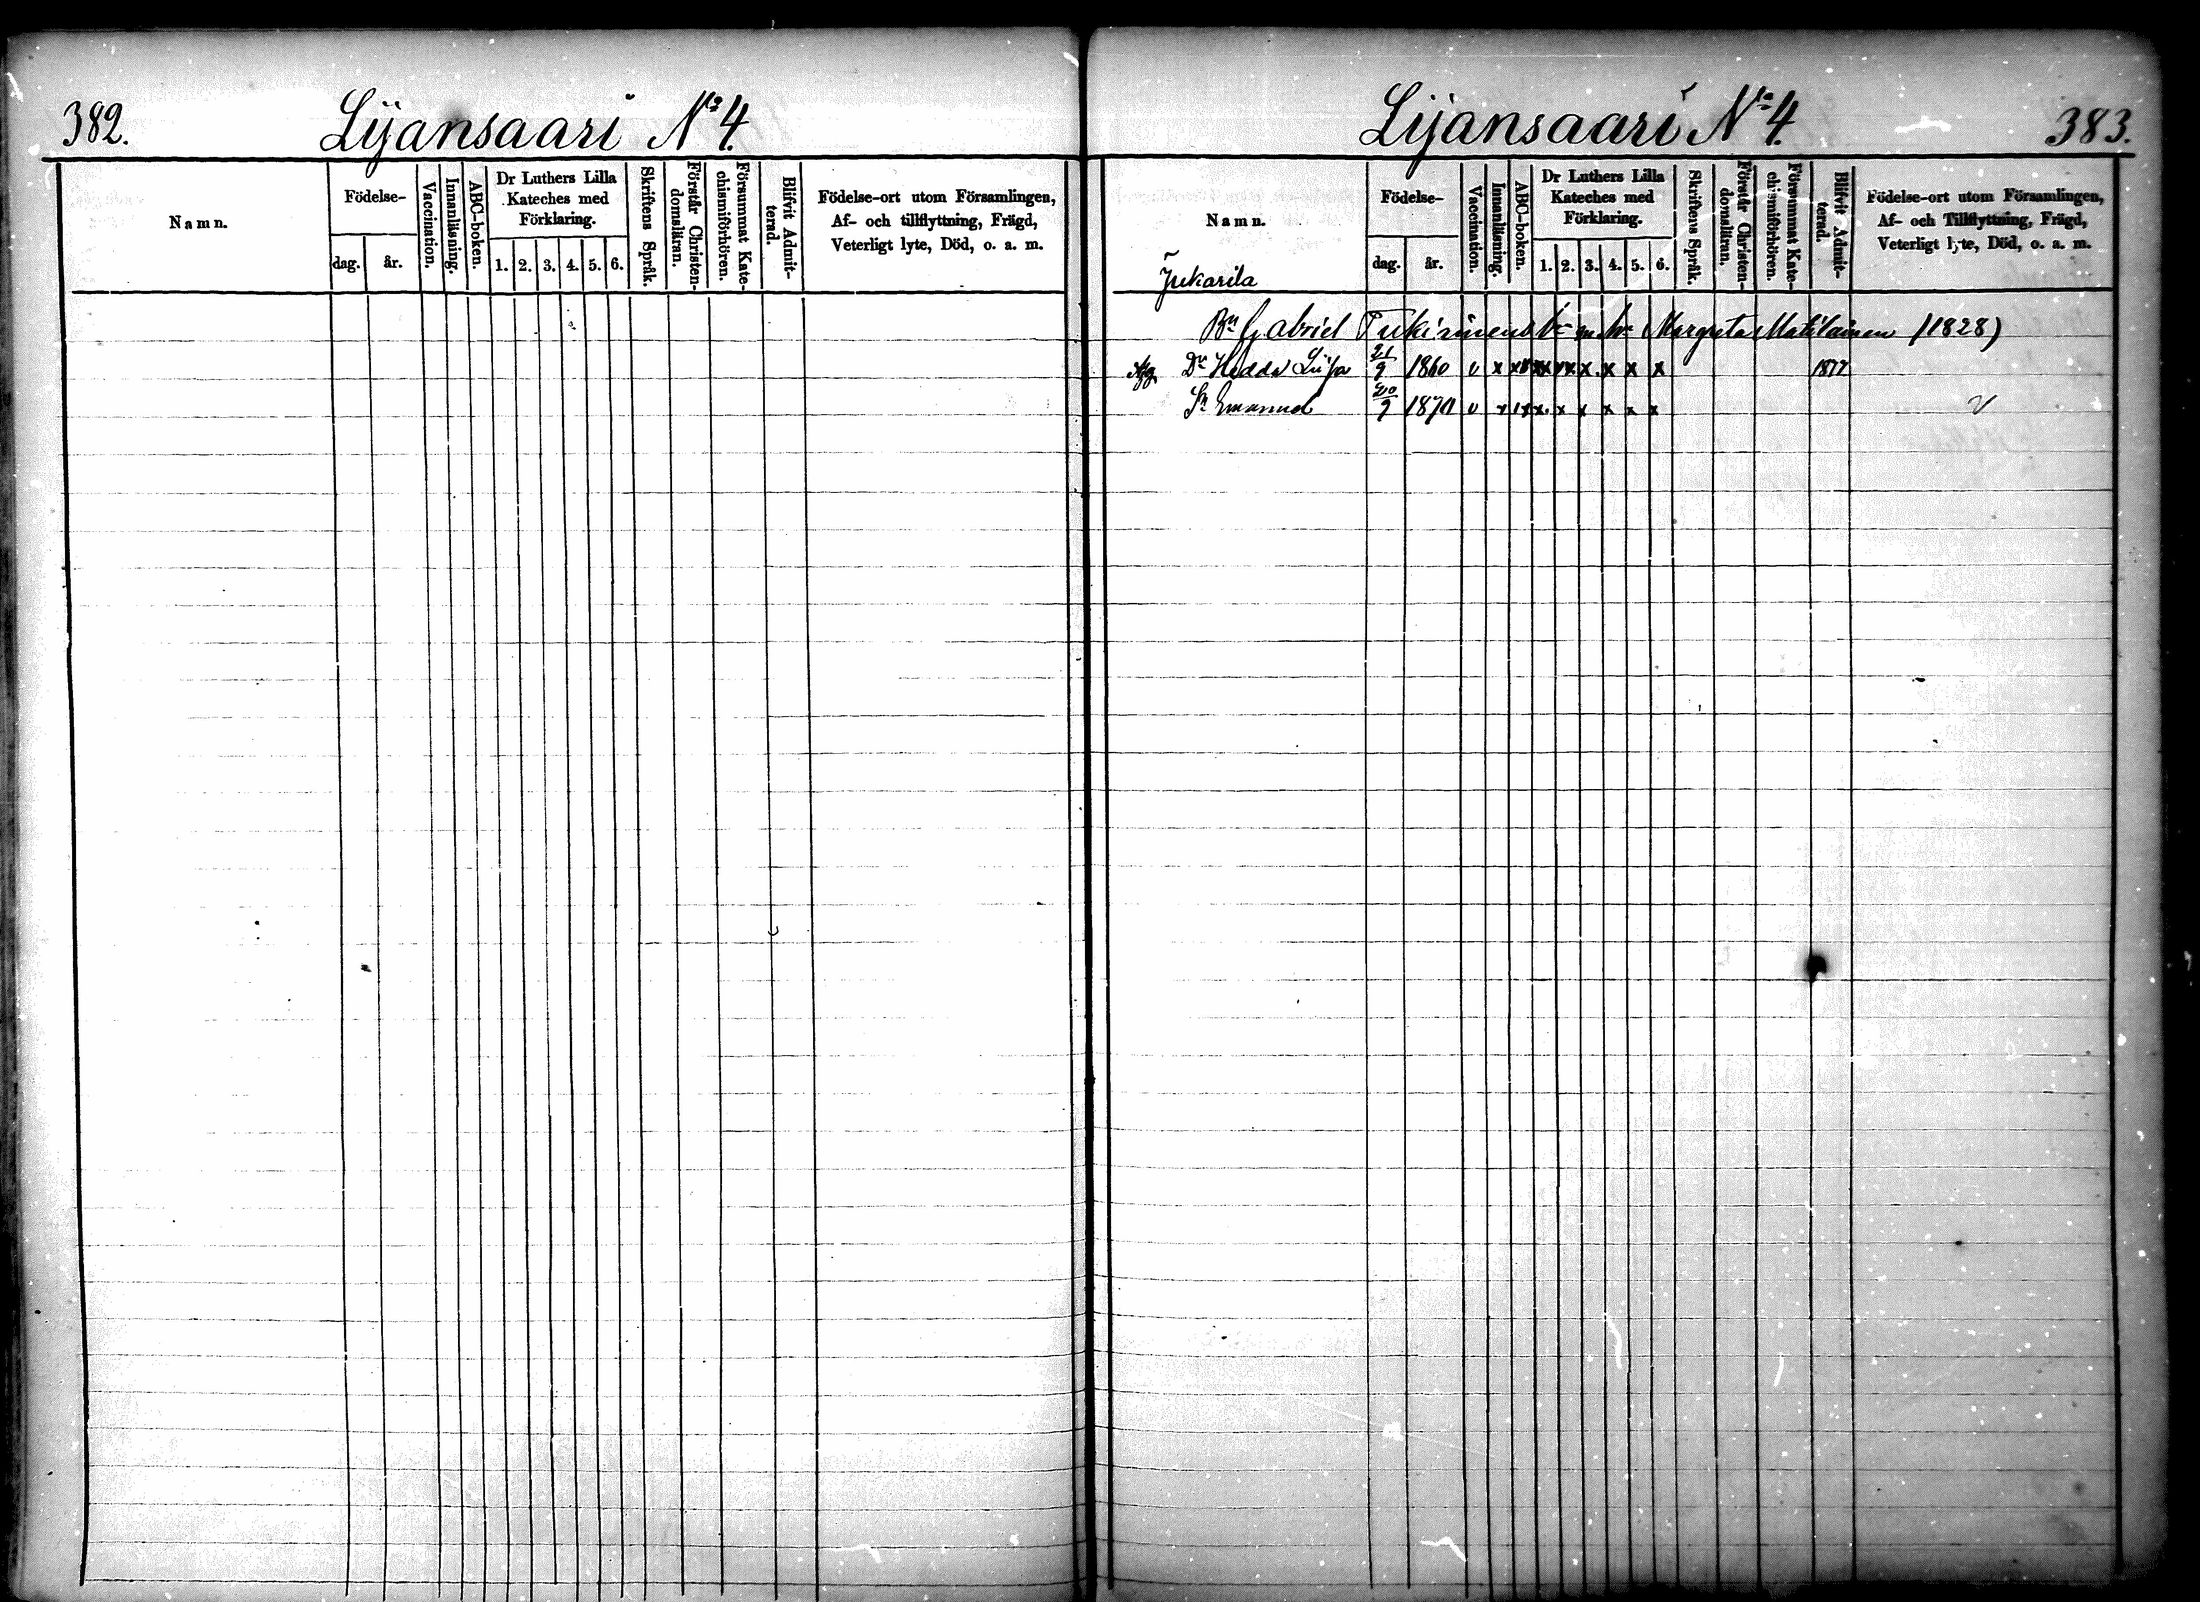 382.
Lijansaari No 4.
Namn.
Födelse-
dag.
år.
Vaccination.
Innanläsning.
ABC-boken.
Dr Luthers Lilla
Kateches med
Förklaring.
1. 2. 3. 4. 5. 6.
Skriftens Språk.
Förstår Christen-
domsläran.
Försummat Kate-
chismiförhören.
Blifvit Admit-
terad.
Födelse-ort utom Församlingen,
Af- och tillflyttning, Frägd,
Veterligt lyte, Död, o. a. m.
Lijansaari No 4.
383.
Namn.
Födelse-
dag.
år.
Vaccination.
Innanläsning.
ABC-boken.
Dr Luthers Lilla
Kateches med
Förklaring.
1. 2. 3. 4. 5. 6.
Skriftens Språk.
Förstår Christen-
domsläran.
Försummat Kate-
chismiförhören.
Blifvit Admit-
terad.
Födelse-ort utom Församlingen,
Af- och Tillflyttning, Frägd,
Veterligt lyte, Död, o. a. m.
Jukarila
Bn Gabriel m. Margreta Matilainen (1828)
Dr Hedda Liisa 21/9 1860 v x x x x x x x 1877
Sn Emanuel 20/9 1870 v x x x x x x v